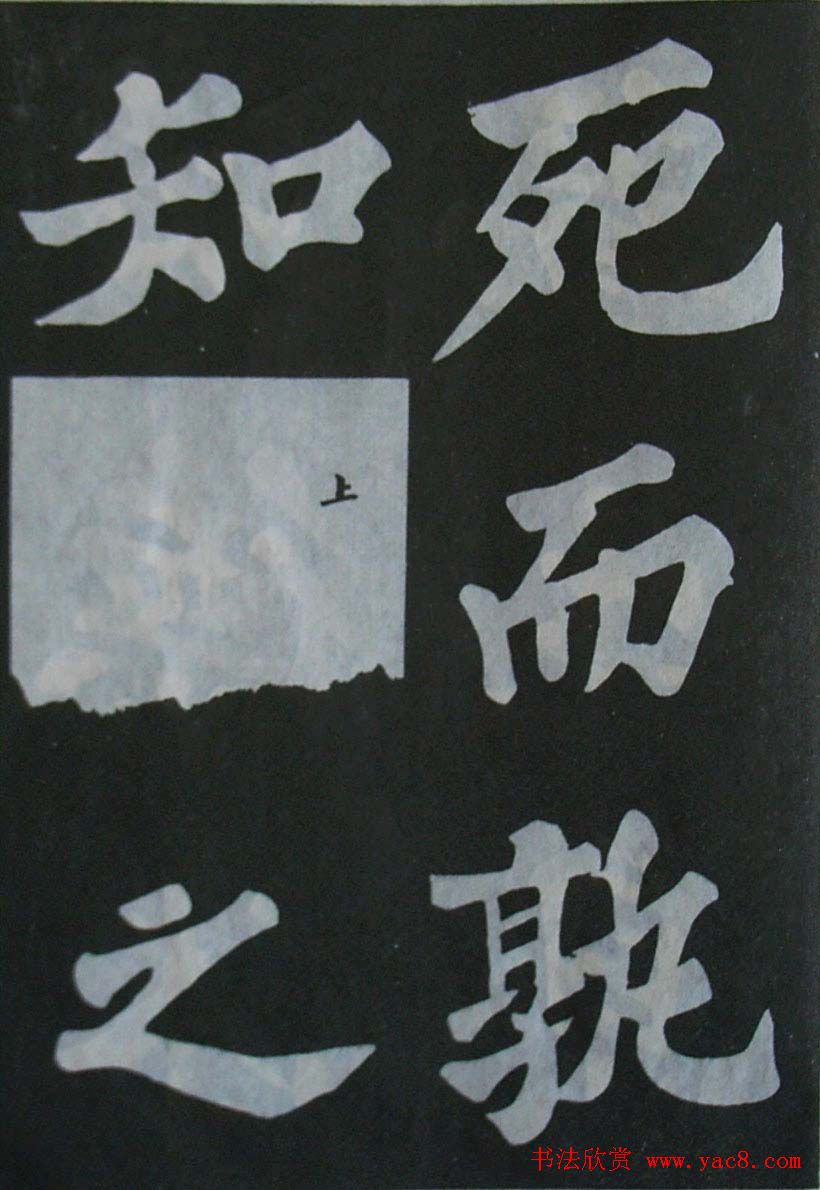 死而孰
知
上
之
书法欣赏 www.yac8.com